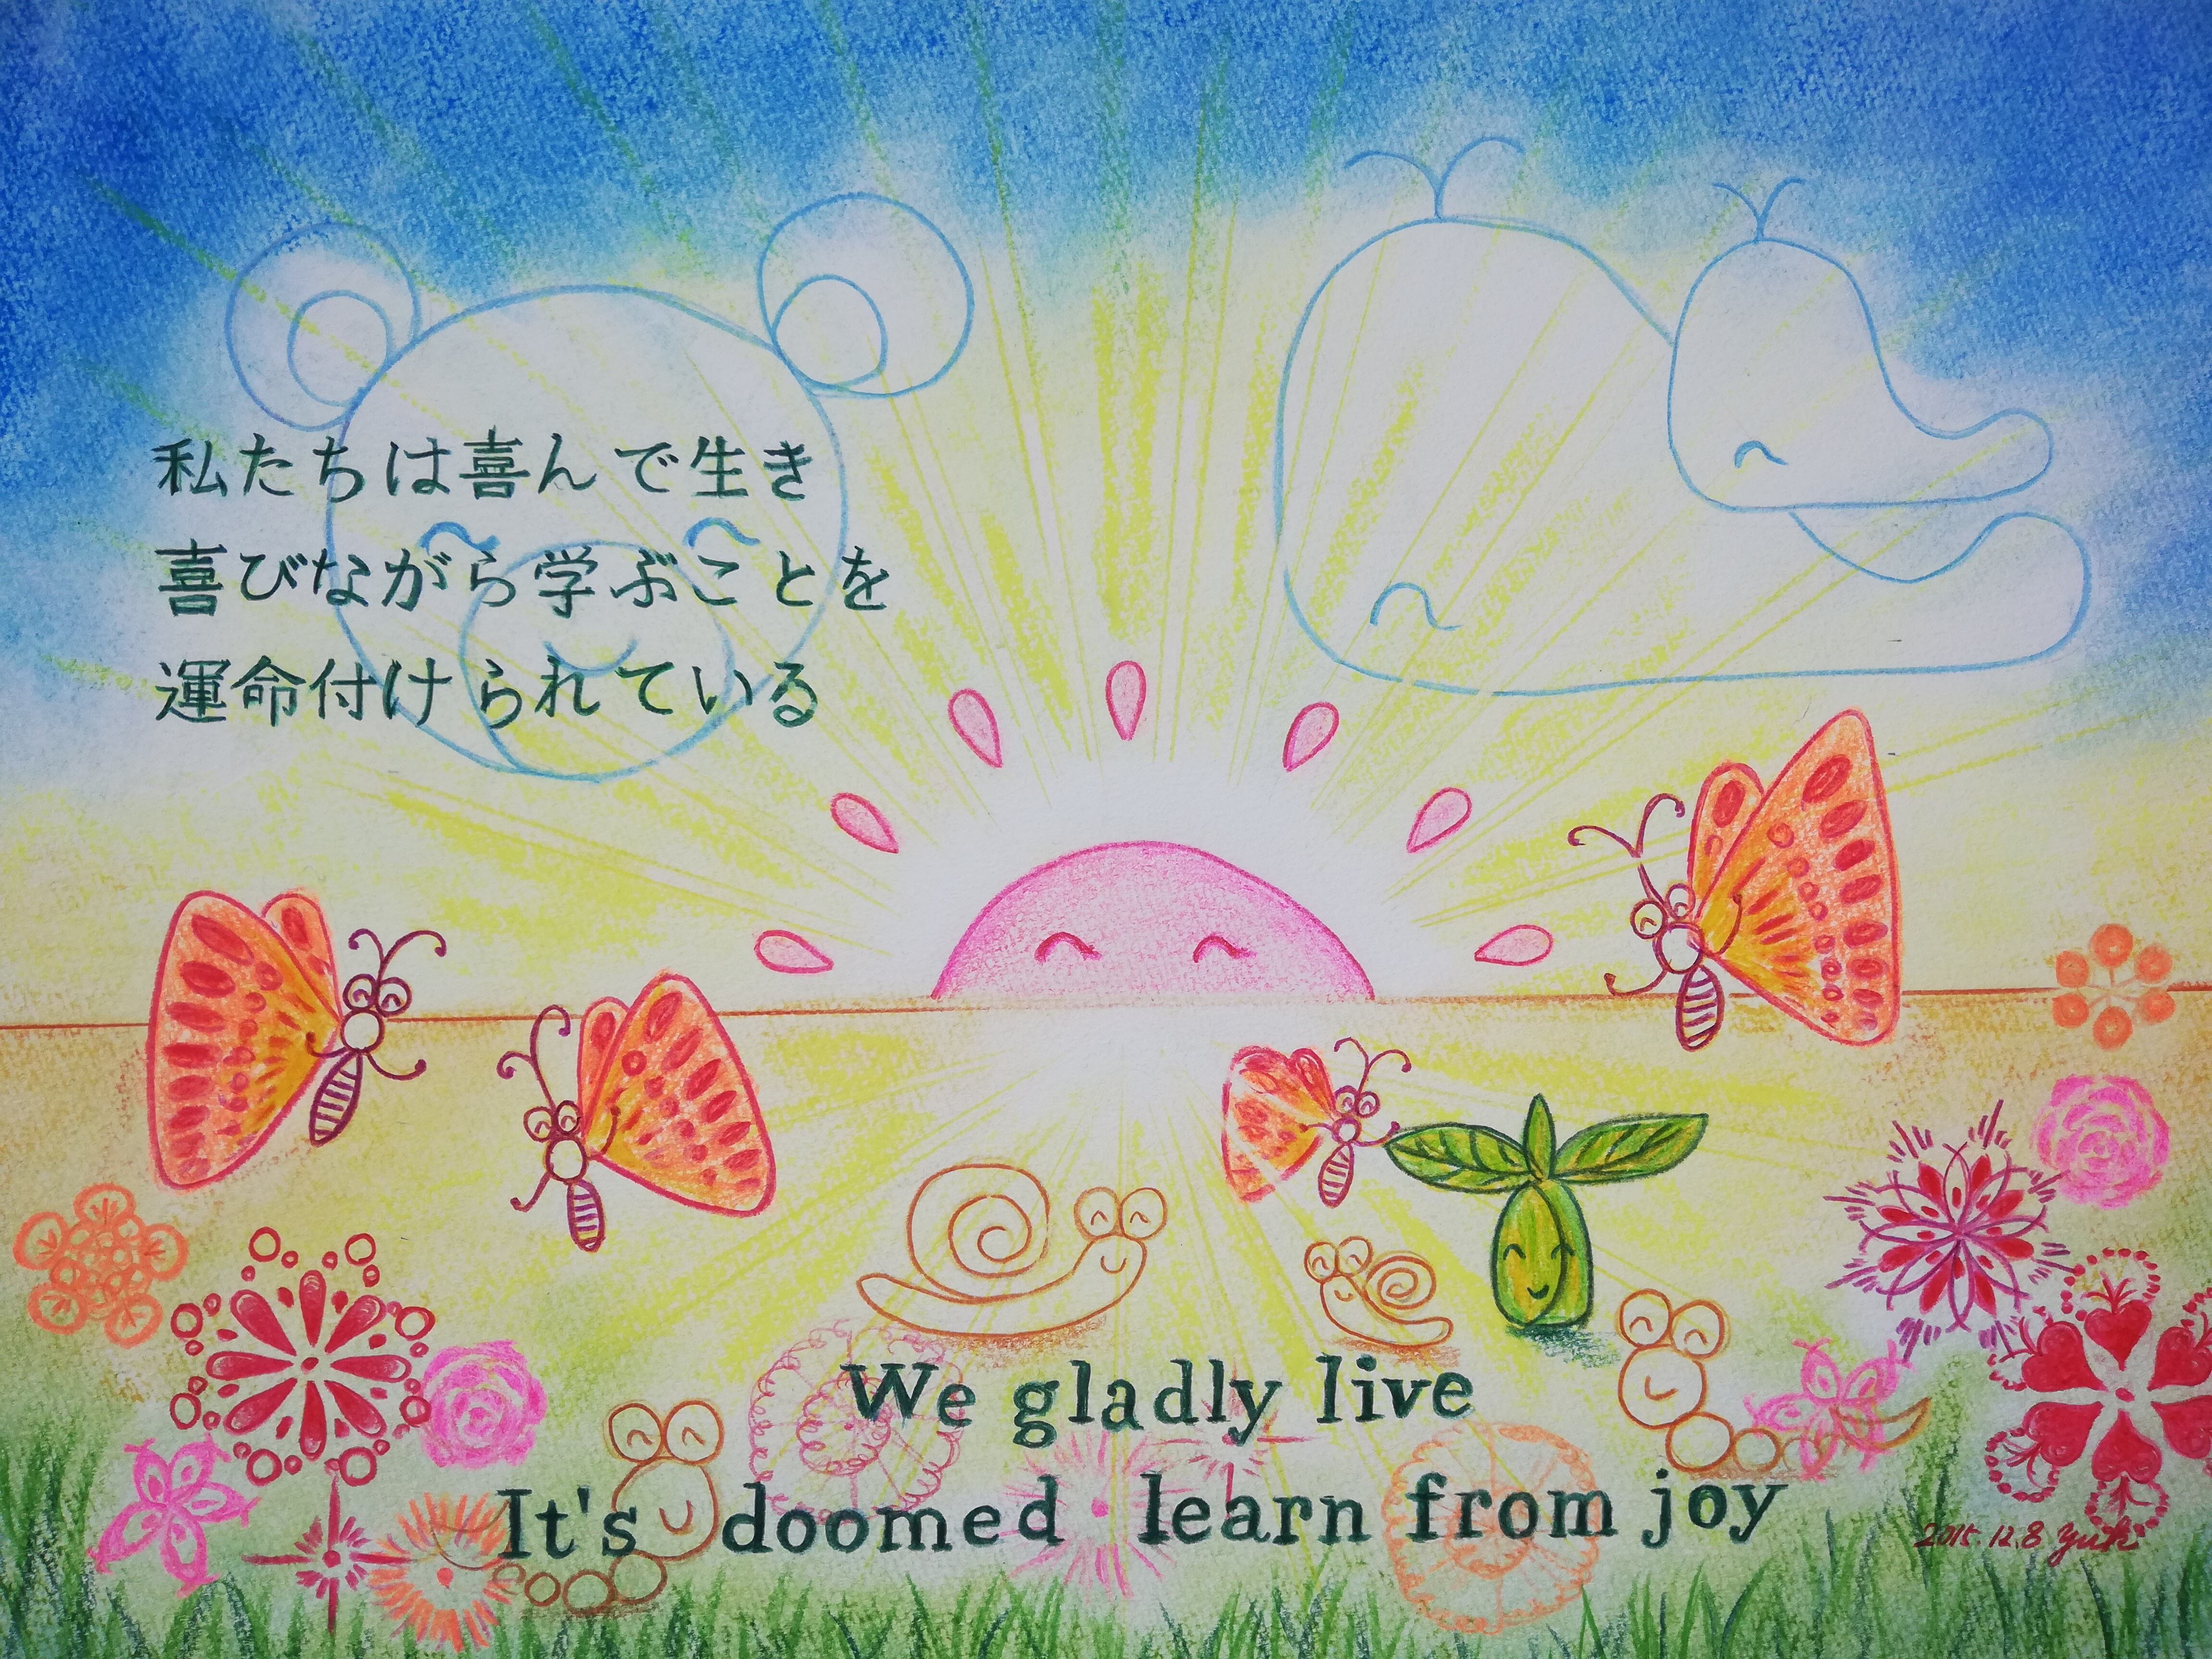 私たちは喜んで生き
喜びながら学ぶことを
運命付けられている
We gladly live
It's doomed learn from joy
2015.12.8